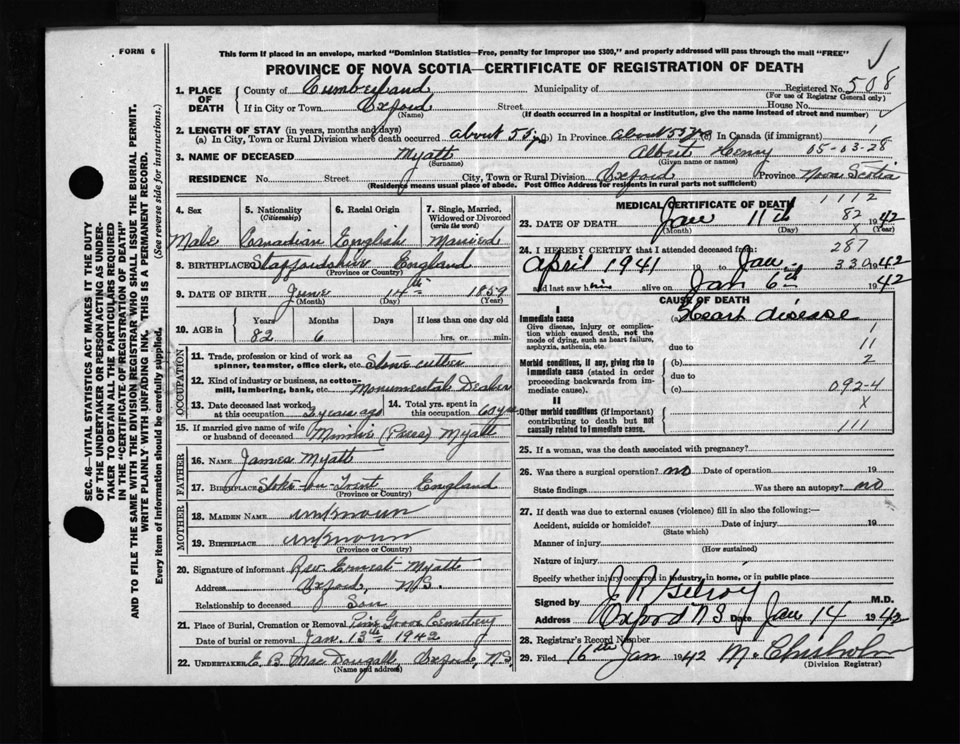 FORM 6
This form if placed in an envelope, marked "Dominion Statistics—Free, penalty for improper use $300," and properly addressed will pass through the mail "FREE"
PROVINCE OF NOVA SCOTIA—CERTIFICATE OF REGISTRATION OF DEATH
SEC. 46—VITAL STATISTICS ACT MAKES IT THE DUTY
OF THE UNDERTAKER OR PERSON ACTING AS UNDER-
TAKER TO OBTAIN ALL THE PARTICULARS REQUIRED
IN THE "CERTIFICATE OF REGISTRATION OF DEATH"
AND TO FILE THE SAME WITH THE DIVISION REGISTRAR WHO SHALL ISSUE THE BURIAL PERMIT.
WRITE PLAINLY WITH UNFADING INK. THIS IS A PERMANENT RECORD.
Every item of information should be carefully supplied. (See reverse side for instructions.)
1. PLACE OF DEATH County of Cumberland Municipality of Registered No. 508
(For use of Registrar General only)
If in City or Town Oxford Street House No.
(Name) (If death occurred in a hospital or institution, give the name instead of street and number)
2. LENGTH OF STAY (in years, months and days)
(a) In City, Town or Rural Division where death occurred about 55 yrs (b) In Province about 55 yrs (c) In Canada (if immigrant) 1
3. NAME OF DECEASED Myatt Albert Henry 05-03-28
(Surname) (Given name or names)
RESIDENCE No. Street City, Town or Rural Division Oxford Province Nova Scotia
(Residence means usual place of abode. Post Office Address for residents in rural parts not sufficient)
4. Sex 5. Nationality (Citizenship) 6. Racial Origin 7. Single, Married, Widowed or Divorced (write the word)
Male Canadian English Married
8. BIRTHPLACE Staffordshire England
(Province or Country)
9. DATE OF BIRTH June 14th 1859
(Month) (Day) (Year)
10. AGE in Years Months Days If less than one day old
82 6 hrs. or min.
OCCUPATION
11. Trade, profession or kind of work as
spinner, teamster, office clerk, etc. Stone cutter
12. Kind of industry or business, as cotton-
mill, lumbering, bank, etc. Monumental Dealer
13. Date deceased last worked
at this occupation 2 years ago
14. Total yrs. spent in
this occupation 60 yrs
15. If married give name of wife
or husband of deceased Minnie (Preea) Myatt
FATHER
16. Name James Myatt
17. Birthplace Stoke-on-Trent England
(Province or Country)
MOTHER
18. Maiden Name unknown
19. Birthplace unknown
(Province or Country)
20. Signature of informant Rev. Ernest Myatt
Address Oxford, N.S.
Relationship to deceased Son
21. Place of Burial, Cremation or Removal Pine Grove Cemetery
Date of burial or removal Jan. 13th 1942
22. Undertaker E. B. MacDougall, Oxford, N.S.
(Name and address)
MEDICAL CERTIFICATE OF DEATH 1112
82
23. DATE OF DEATH Jan 11th X 1942
(Month) (Day) (Year)
24. I HEREBY CERTIFY that I attended deceased from: 287
April 1941 19 to Jan. 330 1942
and last saw him alive on Jan 6th 1942
CAUSE OF DEATH
I
Immediate cause (a) Heart disease
Give disease, injury or complica-
tion which caused death, not the
mode of dying, such as heart failure,
asphyxia, asthenia, etc.
1
due to 11
Morbid conditions, if any, giving rise to
immediate cause (stated in order
proceeding backwards from im-
mediate cause).
(b) 2
due to
(c) 092-4
II
Other morbid conditions (if important)
contributing to death but not
causally related to immediate cause.
X
111
25. If a woman, was the death associated with pregnancy?
26. Was there a surgical operation? no Date of operation 19
State findings Was there an autopsy? no
27. If death was due to external causes (violence) fill in also the following:—
Accident, suicide or homicide? Date of injury 19
(State which)
Manner of injury
(How sustained)
Nature of injury
Specify whether injury occurred in industry, in home, or in public place
Signed by J R Gilroy M.D.
Address Oxford N S Date Jan 14 1942
28. Registrar's Record Number
29. Filed 16th Jan 1942 M. Chisholm
(Division Registrar)